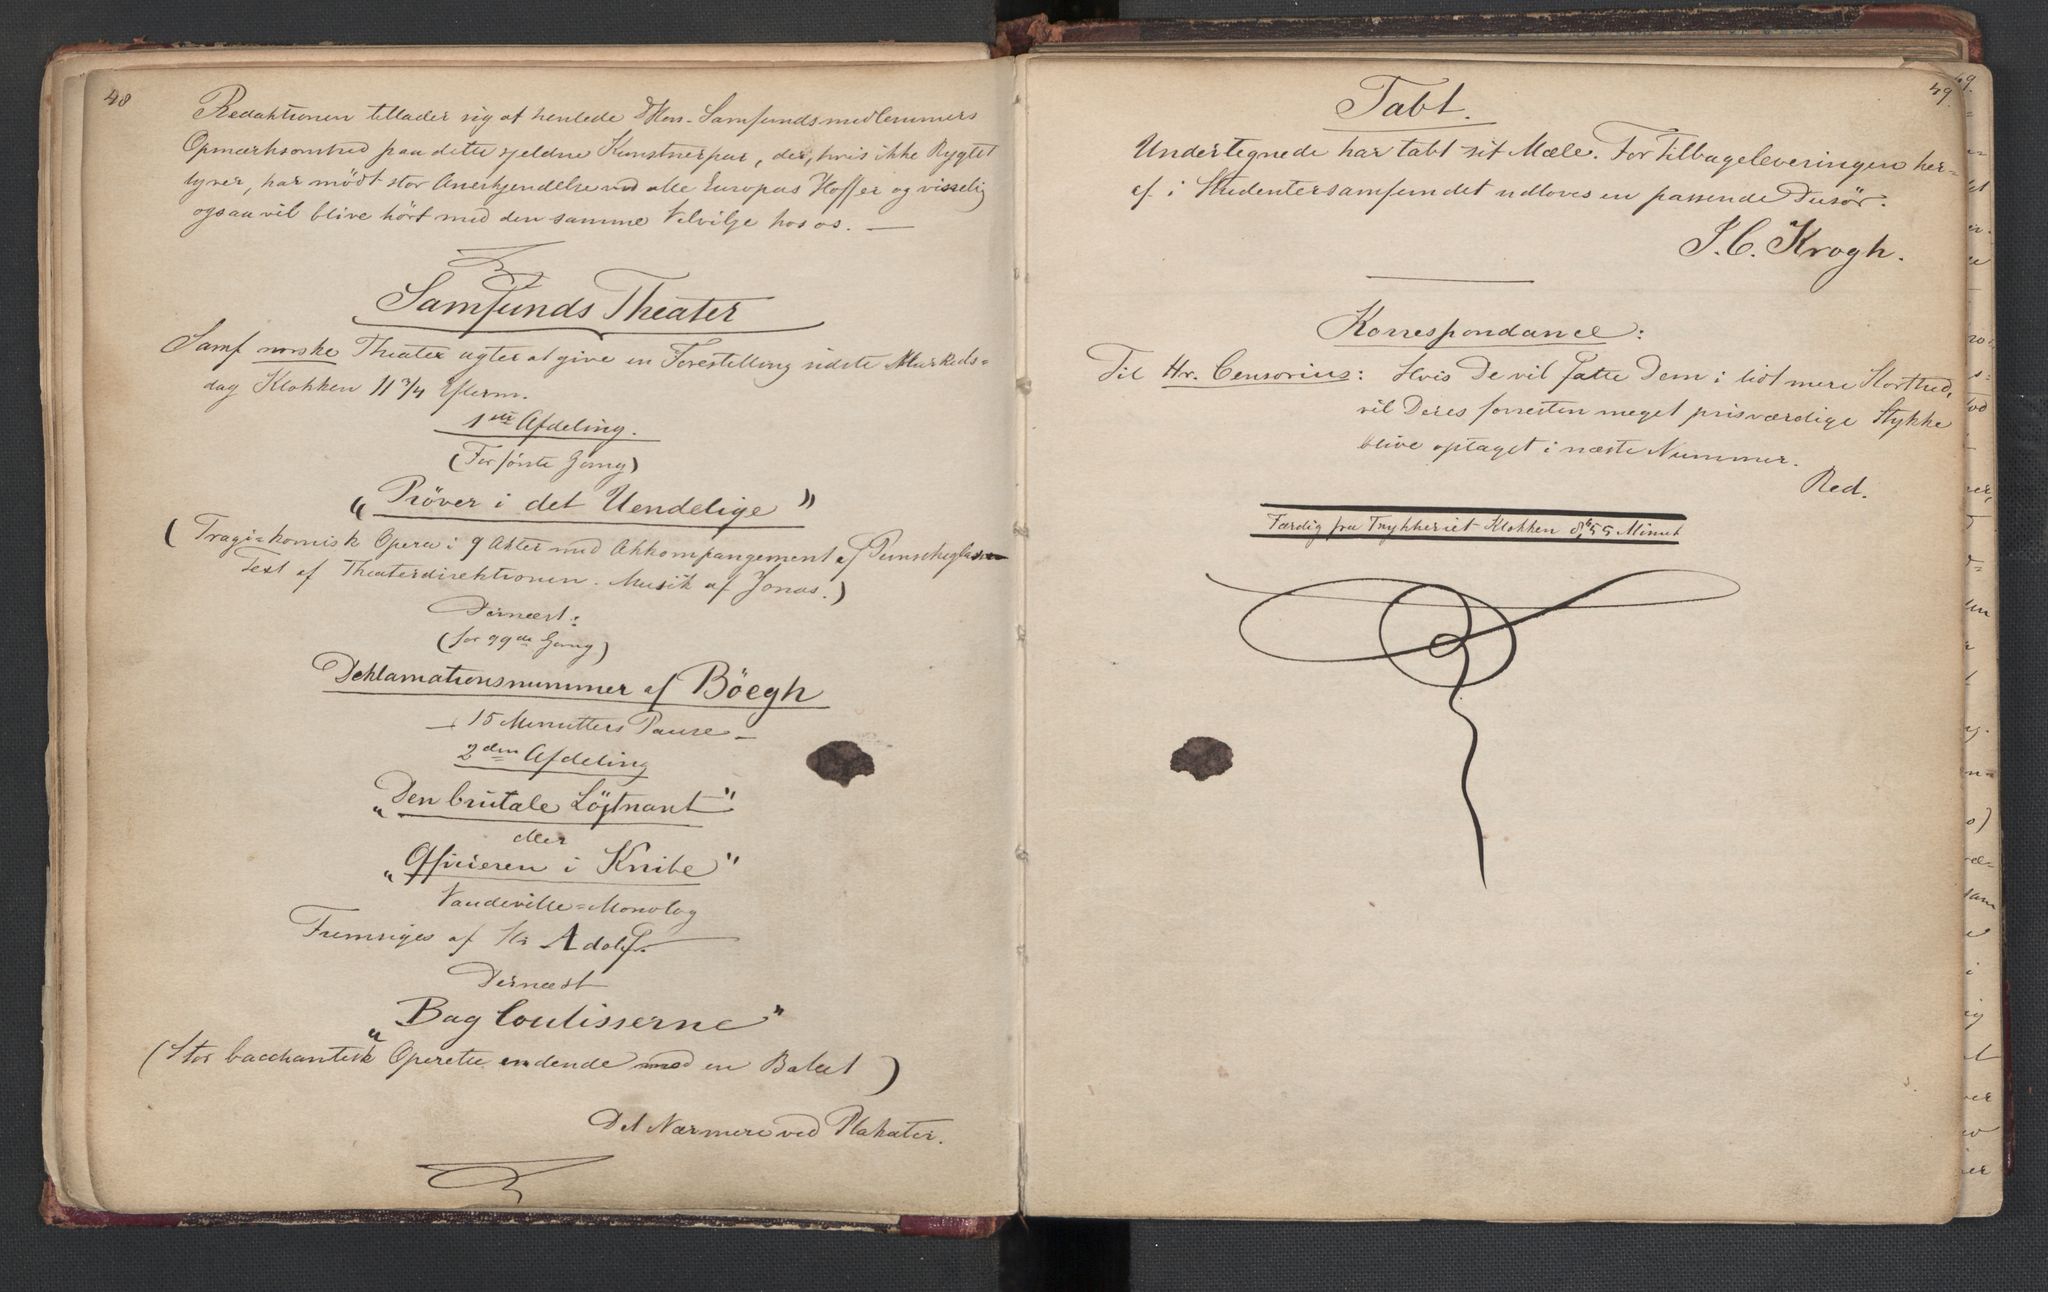 48
Redaktionen tillader sig at henlede Hrr. Samfundsmedlemmers
Opmærksomhed paa dette sjeldne Kunstnerpar, der, hvis ikke Rygtet
lyver, har mödt stor Anerkjendelse ved alle Europas Hoffer og visselig
ogsaa vil blive hört med den samme Velvilje hos os. —
Samfunds Theater
Samf norske Theater agter at give en Forestilling sidste Markeds=
dag Klokken 11 3/4 Efterm.
1ste Afdeling.
(For første Gang)
"Pröver i det Uendelige"
(Tragi=komisk Opera i 9 Akter med Akkompangement af Punscheglasse
Text af Theaterdirektionen. Musik af Jonas.)
Dernæst:
(for 99de Gang)
Deklamationsnummer af Böegh
— 15 Minutters Pause —
2den Afdeling
"Den brutale Löjtnant"
eller
"Officieren i Knibe"
Vaudeville=Monolog
Fremsiges af Hr Adolf.
Dernæst
"Bag Coulisserne"
(Stor bacchantisk Operette endende med en Balet)
Det Nærmere ved Plakater.
49.
Tabt.
Undertegnede har tabt sit Mæle. For Tilbageleveringen her=
af i Studentersamfundet udloves en passende Dusör.
J. C. Krogh.
Korrespondance:
Til Hr. Censorius: Hvis De vil fatte Dem i lidt mere Korthed,
vil Deres forresten meget prisværdige Stykke
blive optaget i næste Nummer.
Red.
Færdig fra Trykkeriet Klokken 8, 55 Minut